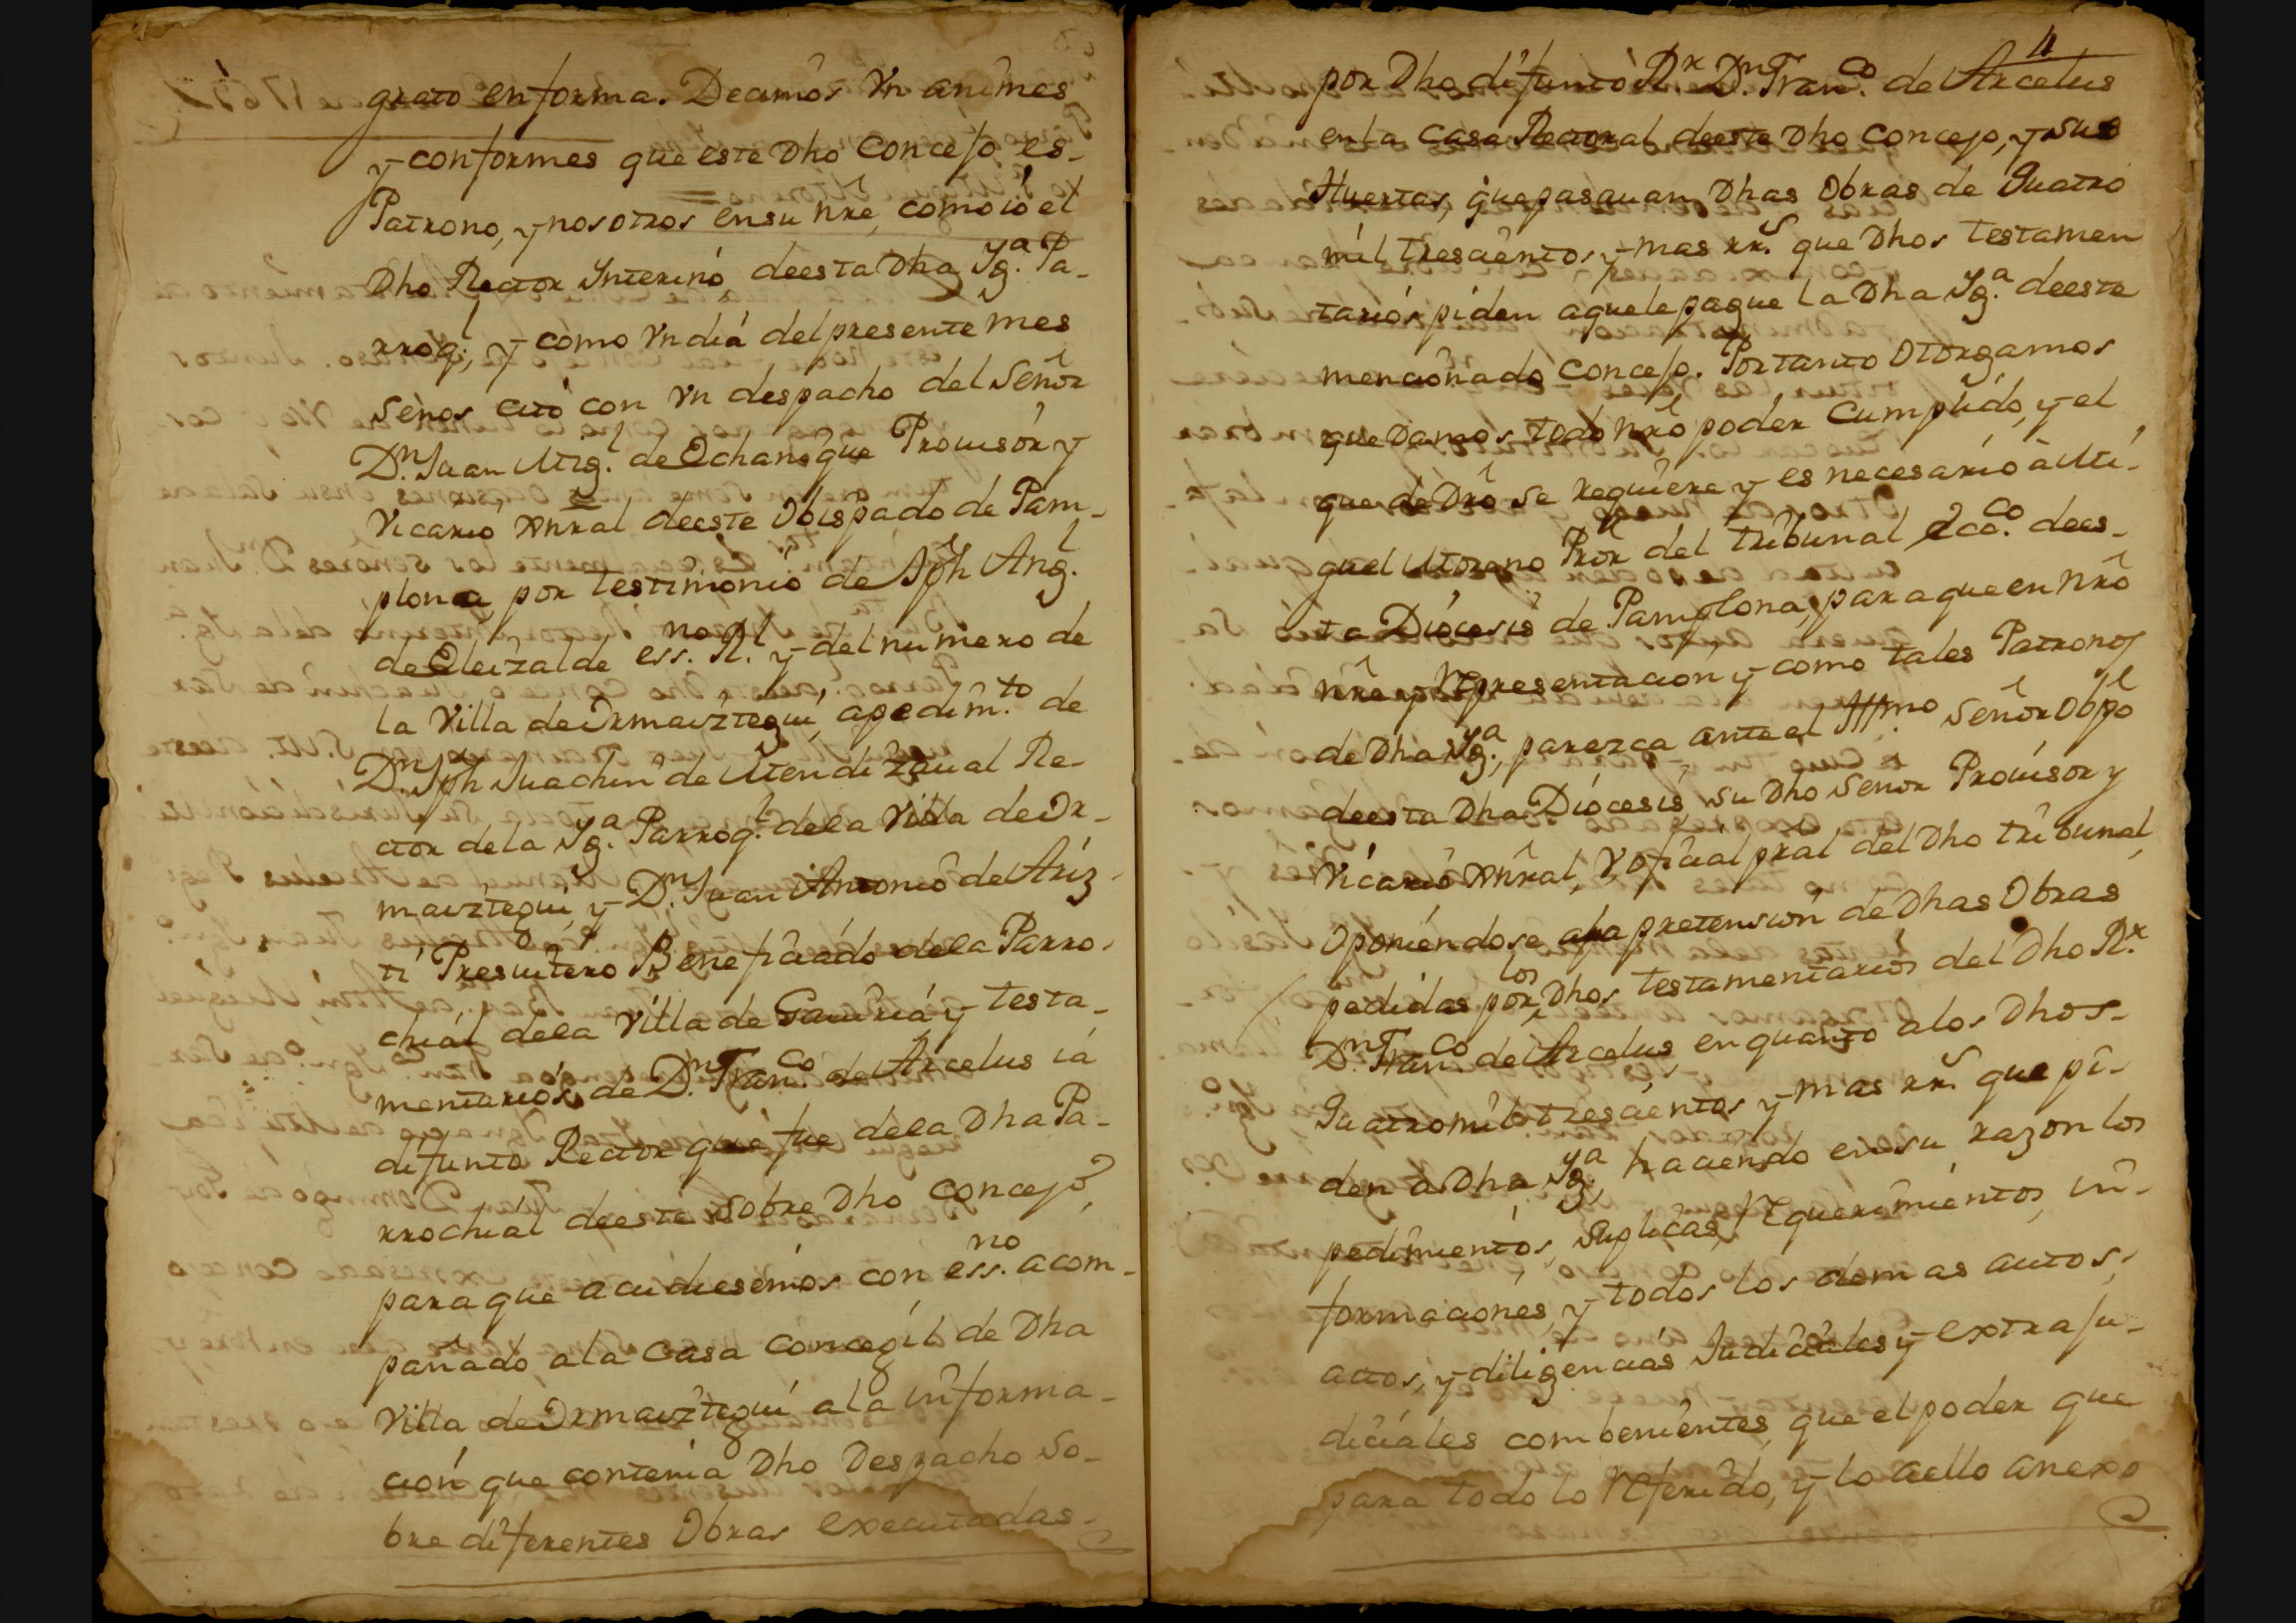 grato en forma. Decimos Vn animes
y conformes que este Dho Concejo es
Patrono, y nosotros ensu nre, como io el
Dho Rector Ynterino, deesta Dha Yg.a Pa-
rroq.l, y como Vn dia del presente mes
senos citó con Vn despacho del Señor
D.n Juan Mig.l de Echaneque Provisór y
Vicario Xnral deeste Obispado de Pam-
plona, por testimonio de Jph Ang.l
de Oleizalde ess.no R.l y del numero de
la Villa de Ormaiztegui, apedim.to de
D.n Jph Juachin de Mendizaual Re-
ctor dela Yg.a Parroq.l dela Villa de Or-
maiztegui y D.n Juan Antonio de Ariz-
ti Presuitero Beneficiado dela Parro-
chiál dela Villa de Gauiria y testa-
mentarios de D.n Fran.co de Arcelus iá
difunto Rector que fue dela Dha Pa-
rrochial deeste sobre Dho Concejo,
para que acudiesemos con ess.no acom-
pañado, ala Casa Concegil de Dha
Villa de Ormaiztegui ala informa-
ción que contenia Dho Despacho so-
bre diferentes Obras executadas
4
por Dho difunto R.r D.n Fran.co de Arcelus
enla Casa Rectoral deeste Dho Concejo, y sus
Huertas, que pasauan Dhas Obras de Quatro
mil trescientos y mas rr.s que Dhos testamen
tarios piden aquele pague la Dha Yg.a deeste
mencionado Concejo. Por tanto Otorgamos
que Damos todo nrõ poder Cumplido, y el
que de Drõ se requiere y es necesario à Mi-
guel Moreno Prõr del tribunal Ecc.co dees-
ta Diócesis de Pamplona, para que en nrõ
nre y Representación y como tales Patronos
de Dha Yg.a, parezca ante el Yll.mo Señor Obpõ
deesta Dha Diócesis, su Dho Señor Provisor y
Vicario Xnral, Y oficial prãl del Dho tribunal,
Oponiendose ala pretensión de Dhas Obras
pedidas por los Dhos testamentarios del Dho R.r
D.n Fran.co de Arcelus, en quanto alos Dhos
Quatromil trescientos y mas rr.s que pi-
den à Dha Yg.a, haciendo en su razon los
pedimientos, suplicas, Requerimientos, in-
formaciónes, y todos los demas autos,
actos, y diligencias Judiciales y extraju-
diciáles combenientes, que el poder que
para todo lo Referido, y lo aello anexo